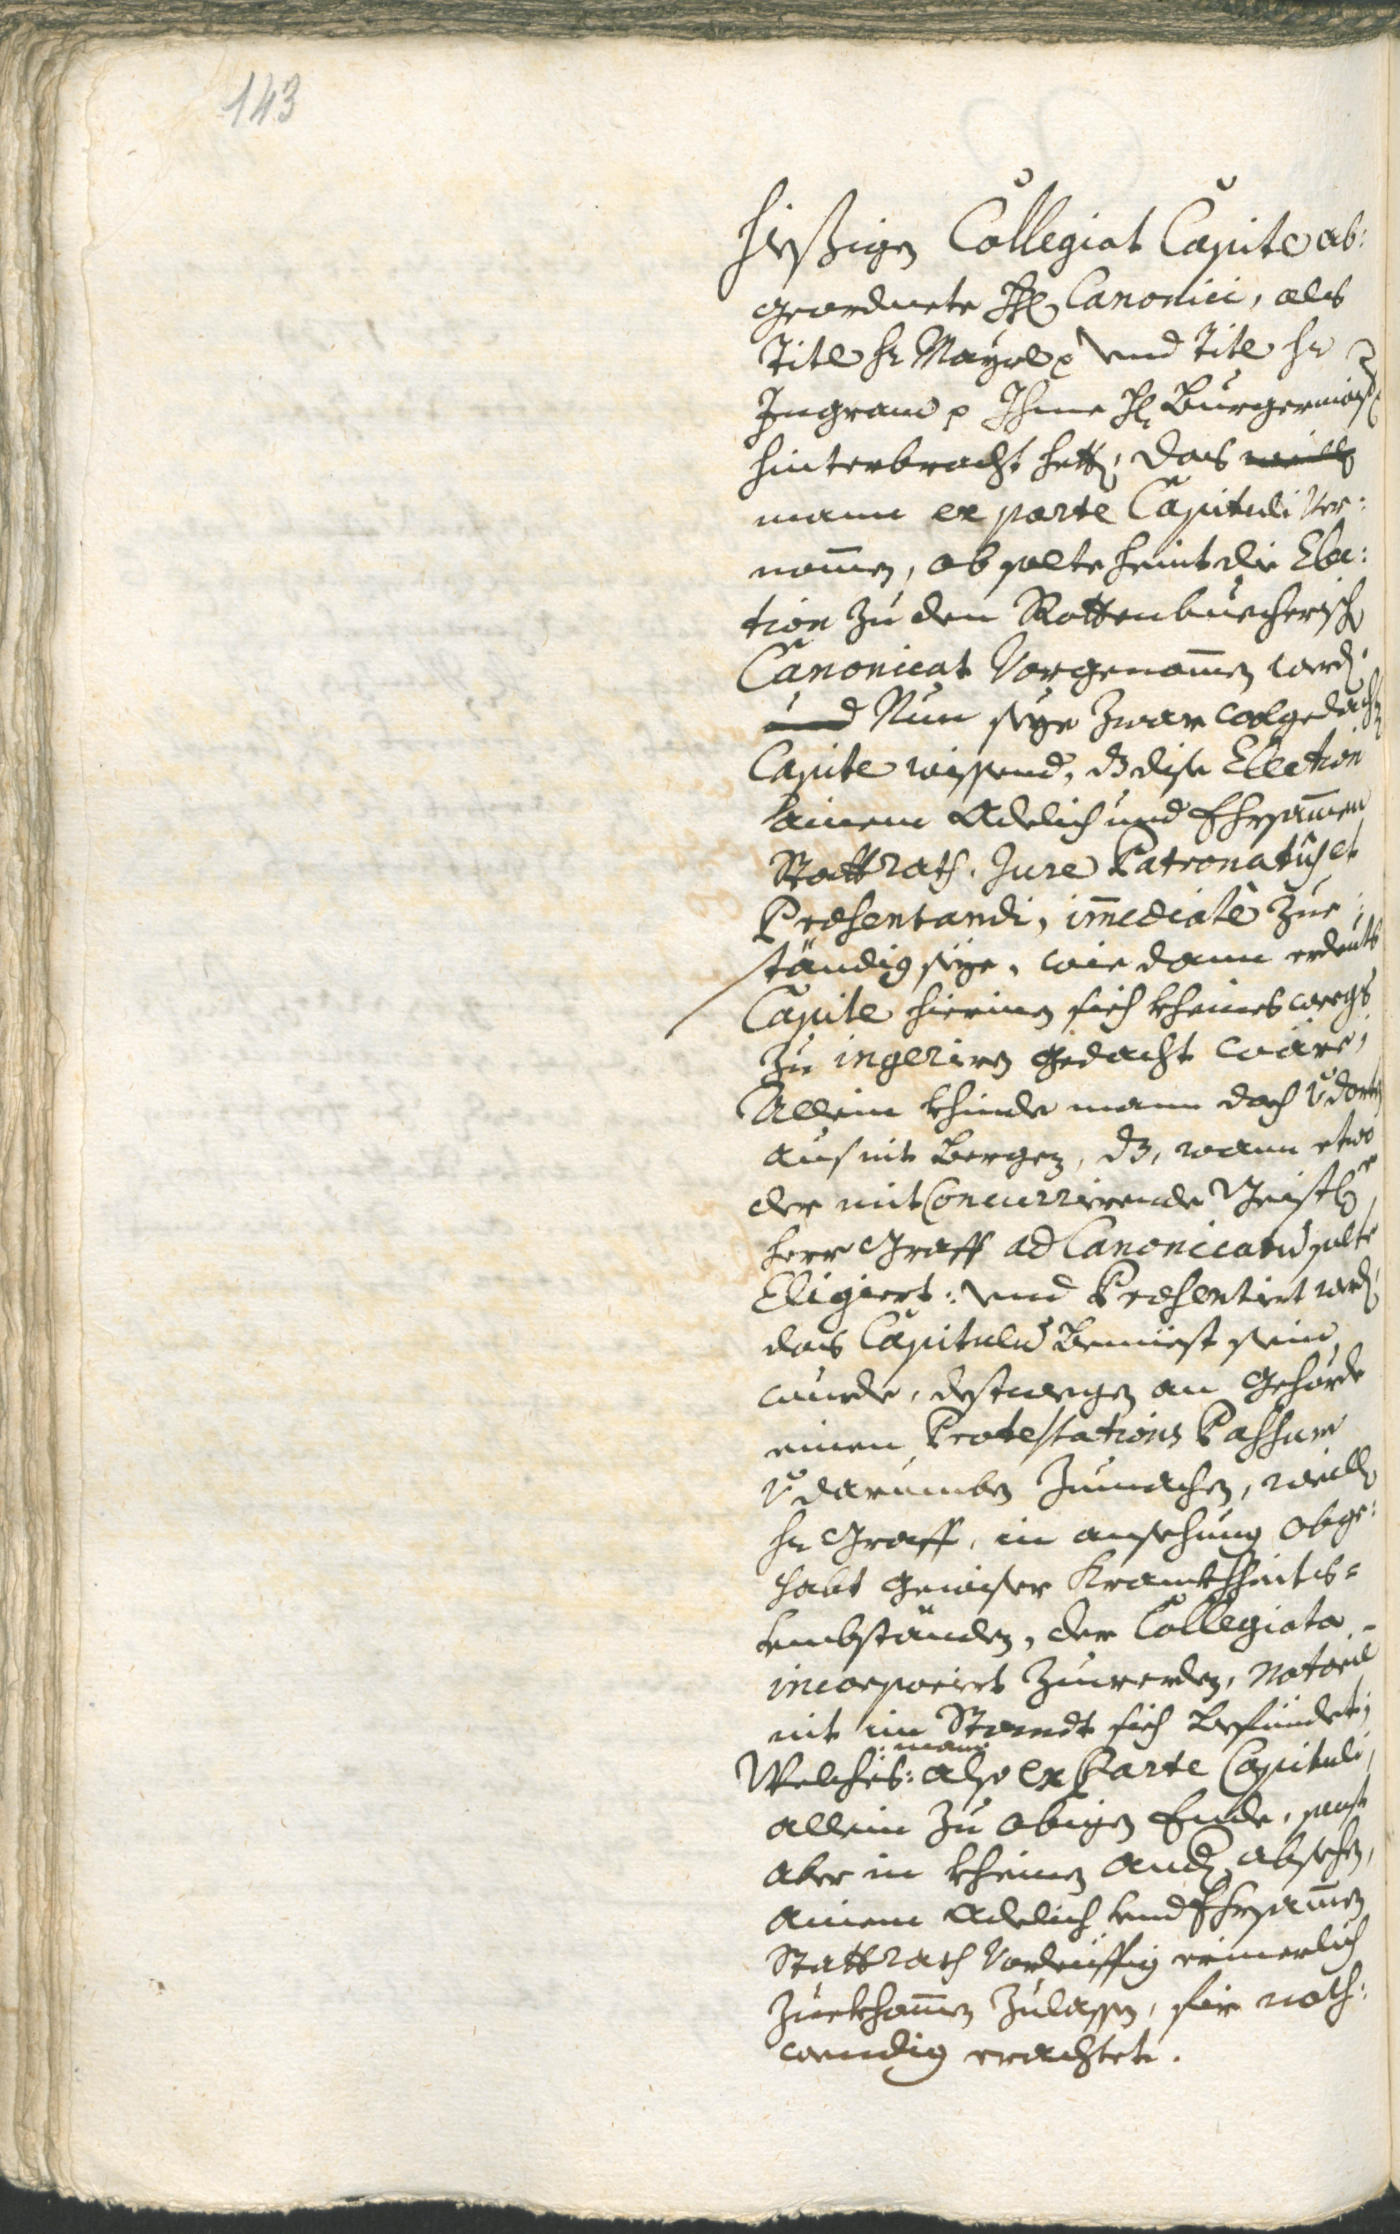 143
hießigen Collegiat Capitl ab:
geordnete HH. Canonici, als
Titl Hr Mayrl p und Titl Hr
Ingram p Ihme H: Burgermaist:
hinterbracht hetten, das weillen
mann ex parte Capituli ver:
nommen, ob solte heint die Elec:
tion zu den Rottenbuecherischen
Canonicat vorgenommen werden.
und Nun seye zwar wolgedachten
Capitl wissend, dz dise Election
ainem Adelich und Ehrsammen
Stattrath. Jure Patronatus et
Præsentandi, immediatè zue:
ständig seye, wie dann erdeuts
Capitl hierinen sich kheineswegs
zu ingeriren gedacht wäre;
Allein khinde mann doch vdorten
aus nit bergen, dz, wann etwo
der mit Concurrirende Geistliche
Herr Graff ad Canonicatum solte
Eligiert: und Præsentirt werden,
das Capitulum bemüest sein
wurde, destwegen an gehörde
einen Protestations Passum
vdarumben zumachen, weillen
Hr Graff, in ansehung obge:
habt gewiser Krankheits=
umbständen, der Collegiata
incorporirt zuwerden, notorie
nit im Standt sich befindet;
:mann:
Welches: also ex Parte Capituli,
allein zu obigen Ende, sonst
aber in kheinen andern absehen,
ainem Adelich und Ehrsammen
Stattrath vorleiffig erinerlich
zuekhommen zulassen, für noth:
wendig erachtete.